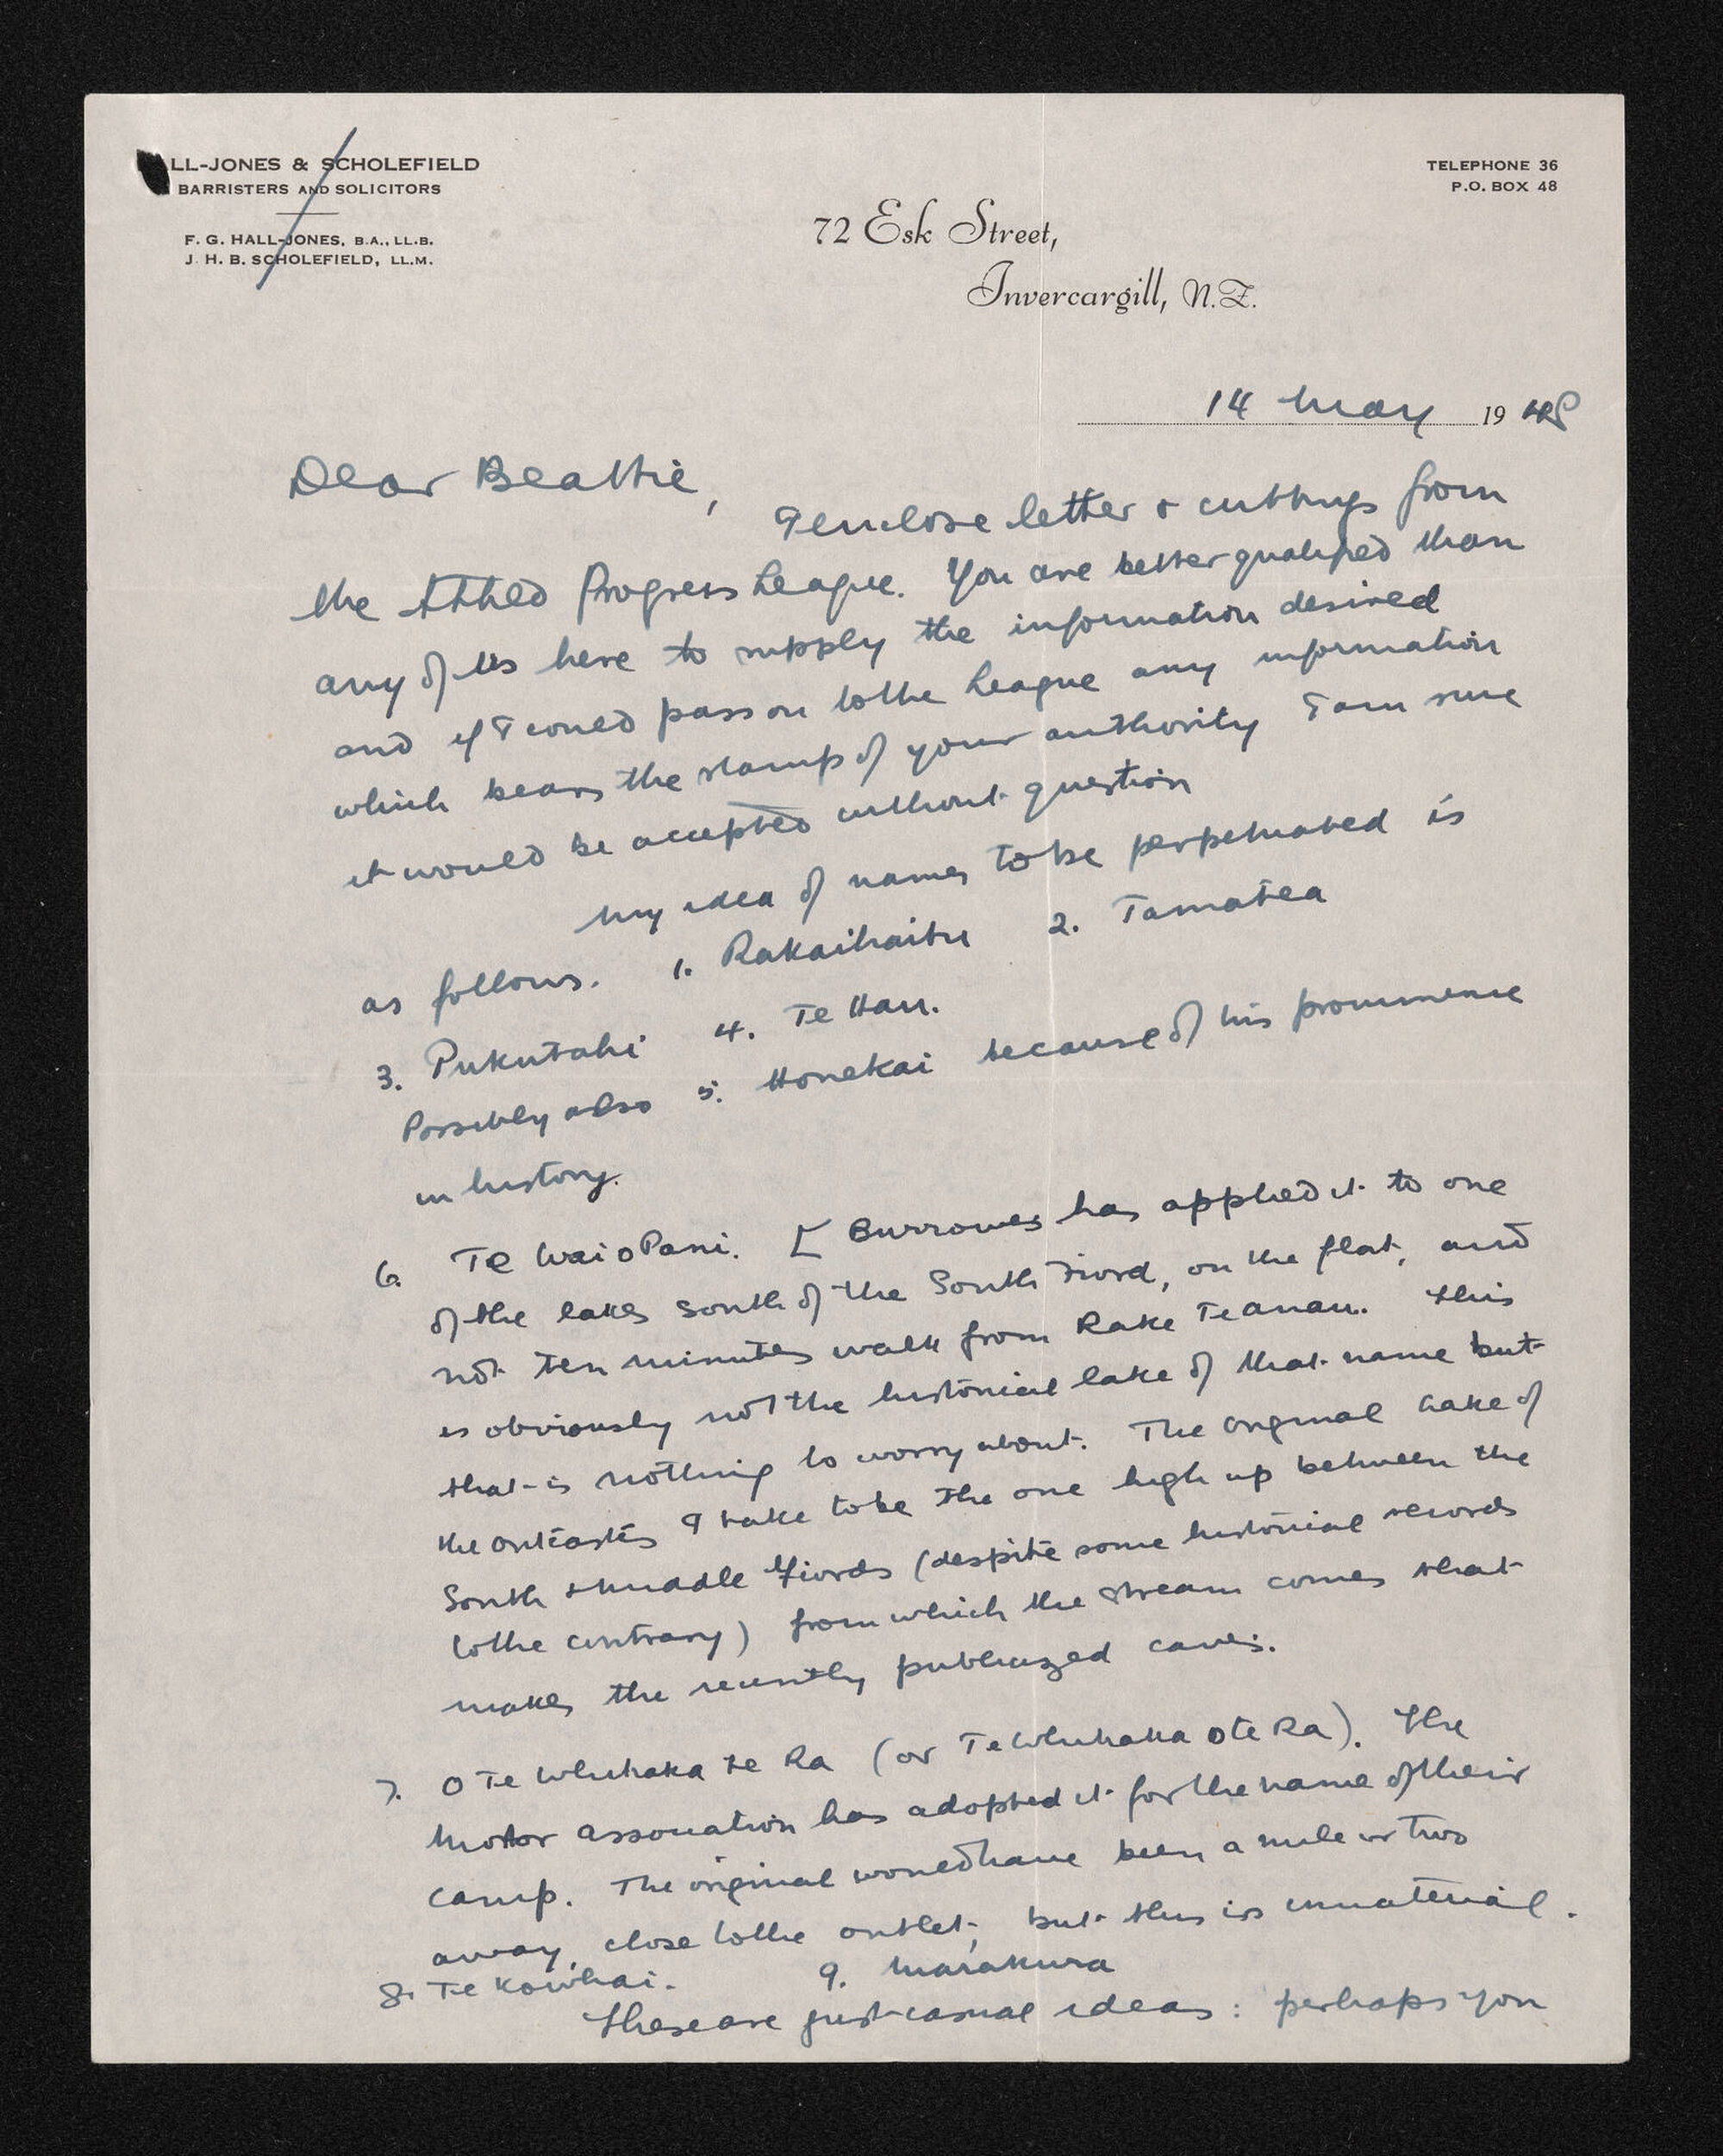 LL-JONES & SCHOLEFIELD
BARRISTERS AND SOLICITORS
F. G. HALL-JONES, B.A., LL.B.
J. H. B. SCHOLEFIELD, LL.M.
TELEPHONE 36
P.O. BOX 48
72 Esk Street,
Invercargill, N.Z.
14 May 1948
Dear Beattie,
I enclose letter & cuttings from
the Allied Progress League. You are better qualified than
any of us here to supply the information desired
and if I could pass on to the League any information
which bears the stamp of your authority I am sure
it would be accepted without question
My idea of names to be perpetuated is
as follows. 1. Rakaihaitu 2. Tamatea
3. Pukutahi 4. Te Hau.
Possibly also 5. Honekai because of his prominence
in history.
6. Te Wai o Pani. [ Burrows has applied it to one
of the lakes south of the South Fiord, on the flat, and
not ten minutes walk from Lake Te Anau. This
is obviously not the historical lake of that name but
that is nothing to worry about. The original Lake of
the outcasts I take to be the one high up between the
South & Middle Fiords (despite some historical records
to the contrary) from which the stream comes that
makes the recently publicized caves.
7. O Te Whihaka te Ra (or Te Whihaka o te Ra). The
Motor Association has adopted it for the name of their
camp. The original would have been a mile or two
away, close to the outlet, but this is immaterial.
8. Te Kowhai. 9. Marakura
These are just casual ideas : perhaps you